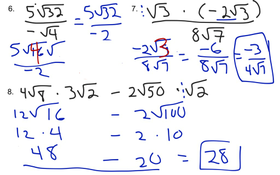 6. 5√32 / -√4 = 5√32 / -2
5√4√ / -2
7. √3 · (-2√3) / 8√7
-2√3 / 8√7 = -6 / 8√7 = -3 / 4√7
8. 4√8 · 3√2 - 2√50 · √2
12√16 - 2√100
12 · 4 - 2 · 10
48 - 20 = 28